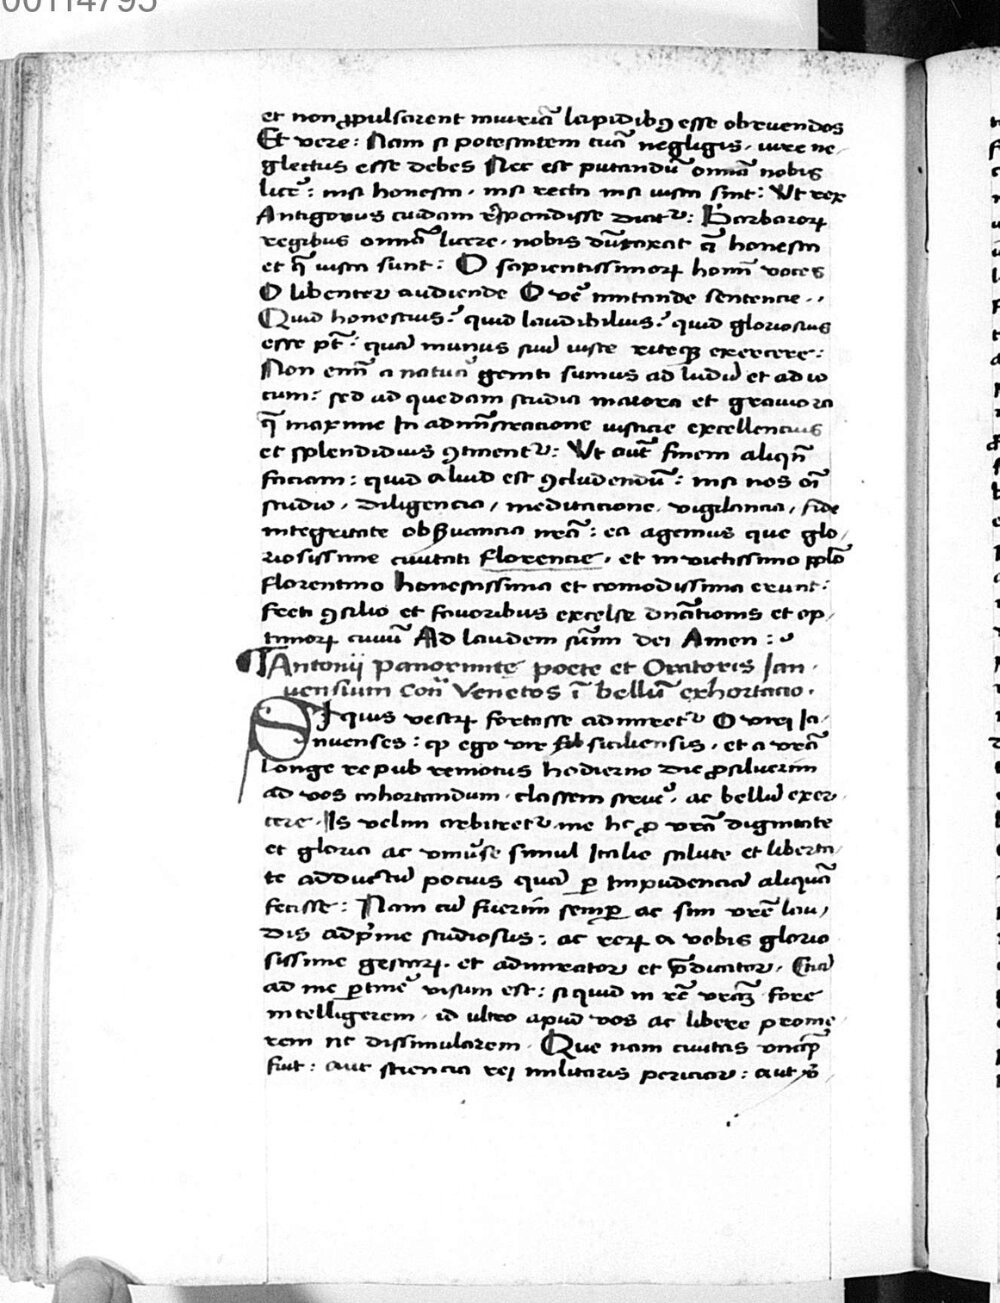 00114795
et non ꝓpulsarent muriā lapidibꝯ esse obruendos
Et vere: Nam si potestatem tuā negligis, iure ne-
glectus esse debes Nec est putandū omīa nobis
licē: nisi honesta, nisi recta nisi iusta sint: Vt rex
Antigonus cuidam rn̄spondisse dicitr̄: Barbaroꝝ
regibus omīa licere, nobis dūtaxat q̄ honesta
et q̄ iusta sunt: O sapientissimoꝝ homī voces
O libenter audiende O vē imitande sentencie..
Quid honestius? quid laudibilius? quid gloriosius
esse pt̄? quā munus suū iuste riteqꝫ exercere:
Non enī a natura geniti sumus ad ludū et ad io
cum: sed ad quedam studia maiora et graviora
q̄ maxime In admīstracione iusticie excellencius
et splendidius ꝯtinentr̄: Vt aūt finem aliqn̄
faciam: quid aliud est ꝯcludendū: nisi nos oī
studio, diligencia, meditacione, vigilancia, fide
integritate obẜuancia nrā: ea agemus que glo-
riosissime civitati florencie, et invictissimo pplō
florentino honestissima et comodissima erunt:
freti ꝯsilio et favoribus excelse dn̄ationis et op-
timoꝝ civiū Ad laudem sum̄ dei Amen:
Antonij panormite poete et Oratoris Jan-
uensium con̄ Venetos ī bellū exhortacio.
Siquis vestrꝝ fortasse admiretr̄ O viri Ja-
nuenses: ꝙ ego vir siciliensis, et a vrā
longe re pub remotus hodierno die ꝓsiluerim
ad vos cohortandum, classem strue, ac bellū exer-
cere. Is velim arbitretr̄ me hc ꝓ vrā dignitate
et gloria ac vniūse simul Italie salute et liberta-
te adductū pocius quā ꝑ Impudenciā aliquā
fecisse: Nam cū fuerim semꝑ ac sim vrē lau-
dis adp̄me studiosus: ac reꝝ a vobis glorio
sissime gestaꝝ, et admirator et p̄dicator, Etiā
ad me ꝑtinē visum est: si quid in rē vrāꝫ fore
intelligerem, id ultro apud vos ac libere prome-
rem nc dissimularem. Que nam civitas vnꝗ̄
fuit: aut sciencia rei militaris pericior: aut